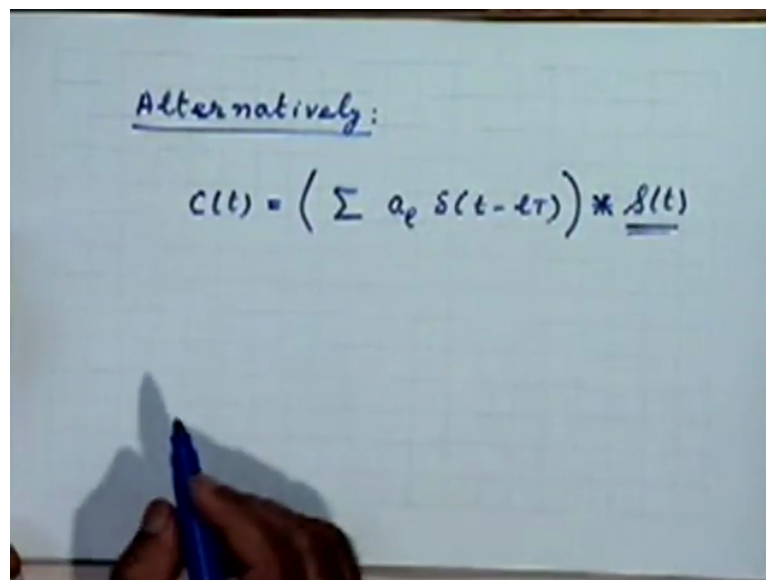 Alternatively:
C(t) = ( Σ a_l δ(t - lT) ) * s(t)